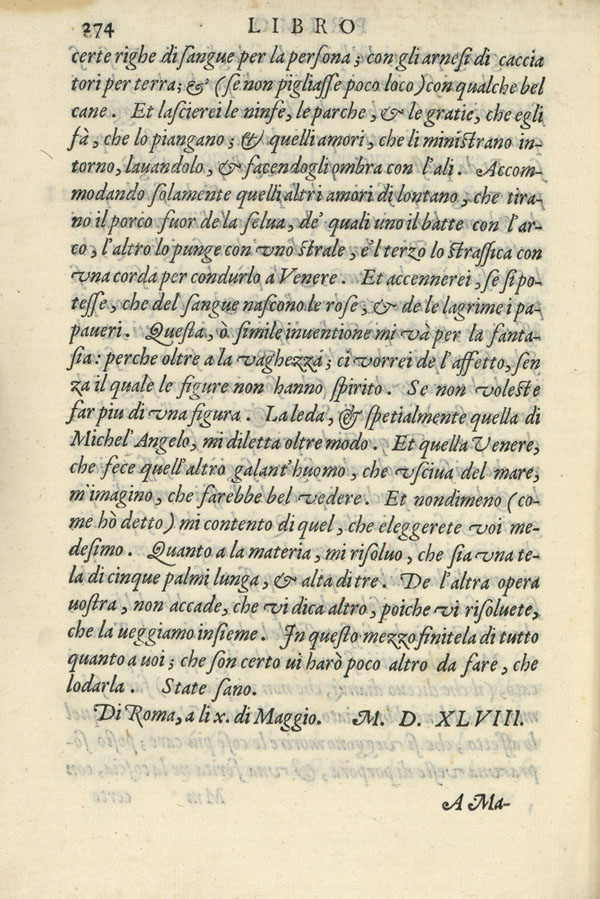 274 LIBRO
certe righe di sangue per la persona; con gli arnesi di caccia
tori per terra; & (se non pigliasse poco loco) con qualche bel
cane. Et lascierei le ninfe, le parche, & le gratie, che egli
fà, che lo piangano; & quelli amori, che li ministrano in-
torno, lavandolo, & facendogli ombra con l'ali. Accom-
modando solamente quelli altri amori di lontano, che tira-
no il porco fuor de la selua, de' quali uno il batte con l'ar-
co, l'altro lo punge con vno strale, e'l terzo lo strassica con
vna corda per condurlo a Venere. Et accennerei, se si po-
tesse, che del sangue nascono le rose, & de le lagrime i pa-
paueri. Questa, ò simile inuentione mi và per la fanta-
sia: perche oltre a la vaghezza; ci vorrei de l'affetto, sen
za il quale le figure non hanno spirito. Se non voleste
far piu di vna figura. La leda, & spetialmente quella di
Michel' Angelo, mi diletta oltre modo. Et quella Venere,
che fece quell'altro galant'huomo, che vsciua del mare,
m'imagino, che sarebbe bel vedere. Et nondimeno (co-
me hò detto) mi contento di quel, che eleggerete voi me-
desimo. Quanto a la materia, mi risoluo, che sia vna te-
la di cinque palmi lunga, & alta di tre. De l'altra opera
uostra, non accade, che vi dica altro, poiche vi risoluete,
che la ueggiamo insieme. In questo mezzo finitela di tutto
quanto a uoi; che son certo ui harò poco altro da fare, che
lodarla. State sano.
Di Roma, a li x. di Maggio. M. D. XLVIII.
A Ma-